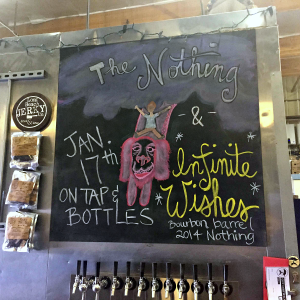 The Nothing
- & -
JAN.
17th
ON TAP &
BOTTLES
Infinite
Wishes
Bourbon barrel
2014 Nothing
JERKY